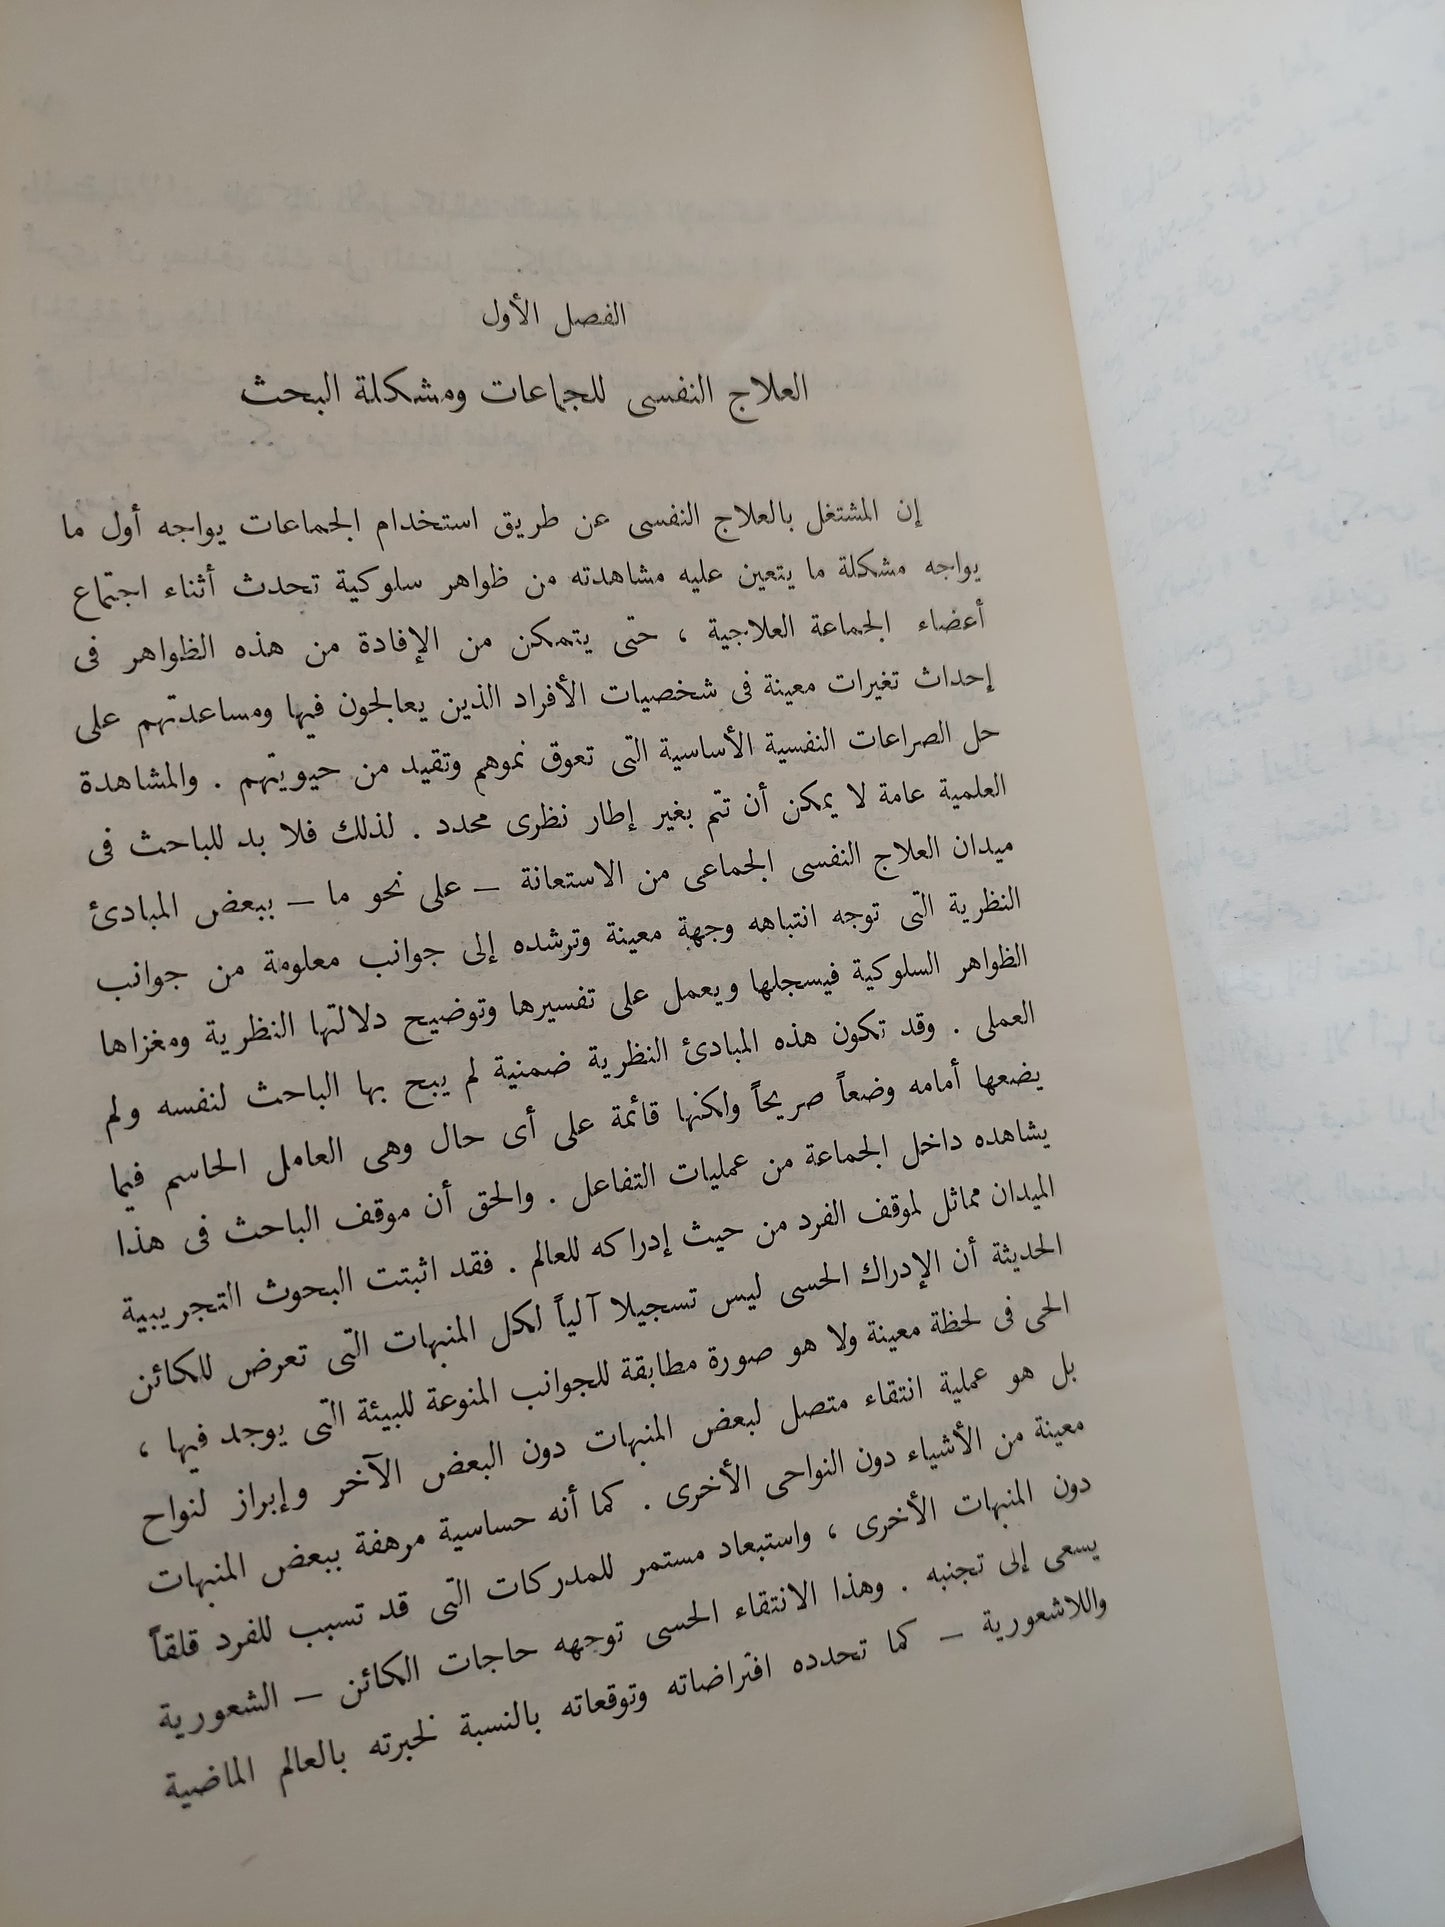 الفصل الأول
العلاج النفسى للجماعات ومشكلة البحث
إن المشتغل بالعلاج النفسى عن طريق استخدام الجماعات يواجه أول ما
يواجه مشكلة ما يتعين عليه مشاهدته من ظواهر سلوكية تحدث أثناء اجتماع
أعضاء الجماعة العلاجية ، حتى يتمكن من الإفادة من هذه الظواهر فى
إحداث تغيرات معينة فى شخصيات الأفراد الذين يعالجون فيها ومساعدتهم على
حل الصراعات النفسية الأساسية التى تعوق نموهم وتقيد من حيويتهم . والمشاهدة
العلمية عامة لا يمكن أن تتم بغير إطار نظرى محدد . لذلك فلا بد للباحث فى
ميدان العلاج النفسى الجماعى من الاستعانة – على نحو ما – ببعض المبادئ
النظرية التى توجه انتباهه وجهة معينة وترشده إلى جوانب معلومة من جوانب
الظواهر السلوكية فيسجلها ويعمل على تفسيرها وتوضيح دلالتها النظرية ومغزاها
العملى . وقد تكون هذه المبادئ النظرية ضمنية لم يبح بها الباحث لنفسه ولم
يضعها أمامه وضعاً صريحاً ولكنها قائمة على أى حال وهى العامل الحاسم فيما
يشاهده داخل الجماعة من عمليات التفاعل . والحق أن موقف الباحث فى هذا
الميدان مماثل لموقف الفرد من حيث إدراكه للعالم . فقد اثبتت البحوث التجريبية
الحديثة أن الإدراك الحسى ليس تسجيلا آلياً لكل المنبهات التى تعرض للكائن
الحى فى لحظة معينة ولا هو صورة مطابقة للجوانب المنوعة للبيئة التى يوجد فيها ،
بل هو عملية انتقاء متصل لبعض المنبهات دون البعض الآخر وإبراز لنواح
معينة من الأشياء دون النواحى الأخرى . كما أنه حساسية مرهفة ببعض المنبهات
دون المنبهات الأخرى ، واستبعاد مستمر للمدركات التى قد تسبب للفرد قلقاً
يسعى إلى تجنبه . وهذا الانتقاء الحسى توجهه حاجات الكائن – الشعورية
واللاشعورية – كما تحدده افتراضاته وتوقعاته بالنسبة لخبرته بالعالم الماضية